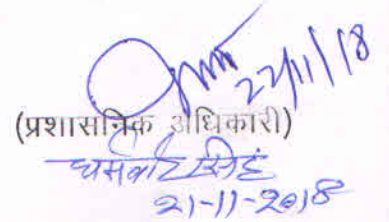 22/11/18
(प्रशासनिक अधिकारी)
धर्मवीर सिंह
21-11-2018